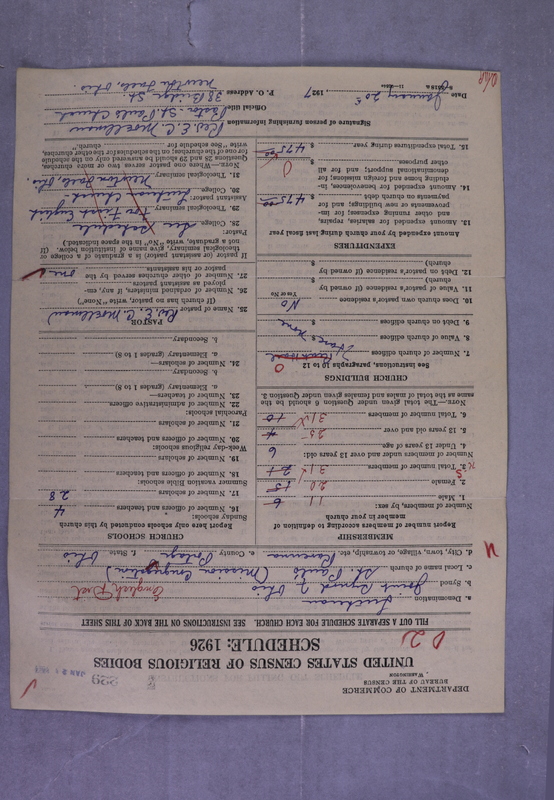 DEPARTMENT OF COMMERCE
BUREAU OF THE CENSUS
WASHINGTON
229
UNITED STATES CENSUS OF RELIGIOUS BODIES
SCHEDULE: 1926
FILL OUT A SEPARATE SCHEDULE FOR EACH CHURCH. SEE INSTRUCTIONS ON THE BACK OF THIS SHEET
a. Denomination Lutheran
b. Synod Joint Synod of Ohio English Dist
c. Local name of church St. Paul's (Mission Congregation)
d. City, town, village, or township, etc. Ravenna e. County Portage f. State Ohio
MEMBERSHIP
Report number of members according to definition of member in your church
Number of members, by sex:
1. Male 11 6
2. Female 20 15
3. Total number of members 31 21
Number of members under and over 13 years old:
4. Under 13 years of age 6
5. 13 years old and over 25
6. Total number of members 31 10
NOTE.—The total given under Question 6 should be the same as the total of males and females given under Question 3.
CHURCH BUILDINGS
See instructions, paragraphs 10 to 12
7. Number of church edifices 0
8. Value of church edifices $ None
9. Debt on church edifices $ None
10. Does church own pastor's residence No
Yes or No
11. Value of pastor's residence (if owned by church) $
12. Debt on pastor's residence (if owned by church) $
EXPENDITURES
Amount expended by your church during last fiscal year
13. Amount expended for salaries, repairs, and other running expenses; for improvements or new building; and for payments on church debt $ 475.00
14. Amount expended for benevolences, including home and foreign missions; for denominational support; and for all other purposes. $ 0
15. Total expenditures during year $ 475.00
CHURCH SCHOOLS
Report here only schools conducted by this church
Sunday schools:
16. Number of officers and teachers 4
17. Number of scholars 28
Summer vacation Bible schools:
18. Number of officers and teachers
19. Number of scholars
Week-day religious schools:
20. Number of officers and teachers
21. Number of scholars
Parochial schools:
22. Number of administrative officers
23. Number of teachers—
a. Elementary (grades 1 to 8)
b. Secondary
24. Number of scholars—
a. Elementary (grades 1 to 8)
b. Secondary
PASTOR
25. Name of pastor Rev. E. C. Moellmann
(If church has no pastor, write "None")
26. Number of ordained ministers, if any, employed as assistant pastors
27. Number of other churches served by the pastor or his assistants one
If pastor (or assistant pastor) is a graduate of a college or theological seminary, give name of institution below. (If not a graduate, write "No" in the space indicated.)
Pastor:
28. College See Schedule
29. Theological seminary For First English
Assistant pastor:
30. College Lutheran Church
31. Theological seminary Newton Falls, Ohio.
NOTE.—Where one pastor serves two or more churches, Questions 28 and 29 should be answered only on the schedule for one of the churches; on the schedules for the other churches, write "See schedule for church."
Signature of person furnishing information Rev. E. C. Moellmann
Official title Pastor St. Paul's Church
Date January 20, 1927 P. O. Address 38 Bridge St.
Newton Falls, Ohio.